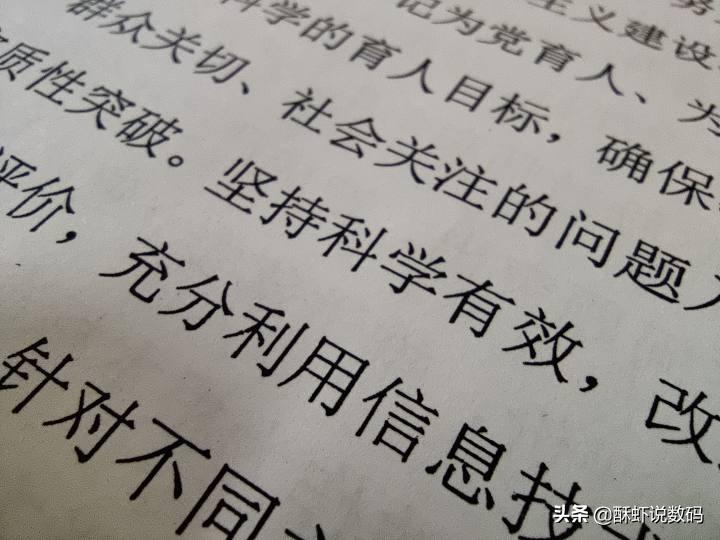 主义建设
记为党育人、为
科学的育人目标，确保
群众关切、社会关注的问题
质性突破。坚持科学有效，改
评价，充分利用信息技
针对不同
头条 @酥虾说数码